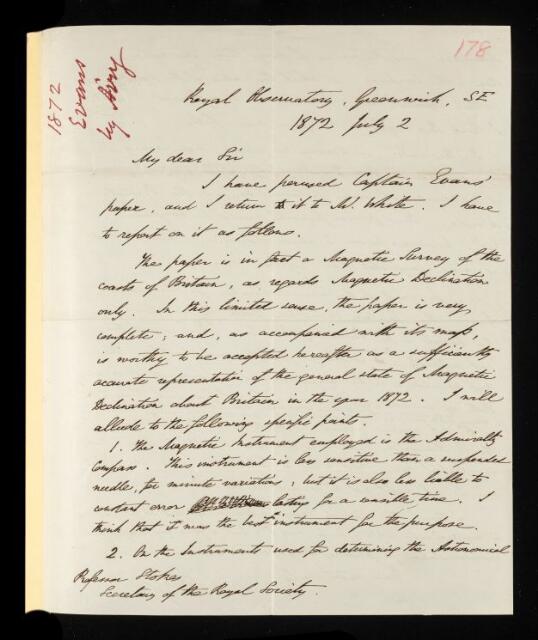 178
1872
Evans
by Airy
Royal Observatory, Greenwich, SE
1872 July 2
My dear Sir
I have perused Captain Evans'
paper, and I return it to Mr. White. I have
to report on it as follows.
The paper is in fact a Magnetic Survey of the
coasts of Britain, as regards Magnetic Declination
only. In this limited sense, the paper is very
complete; and, as accompanied with its maps,
is worthy to be accepted hereafter as a sufficiently
accurate representation of the general state of Magnetic
Declination about Britain in the year 1872. I will
allude to the following specific points.
1. The Magnetic Instrument employed is the Admiralty
Compass. This instrument is less sensitive than a suspended
needle, for minute variations, but it is also less liable to
constant error lasting for a sensible time. I
think that it was the best instrument for the purpose.
2. On the Instruments used for determining the Astronomical
Professor Stokes
Secretary of the Royal Society.